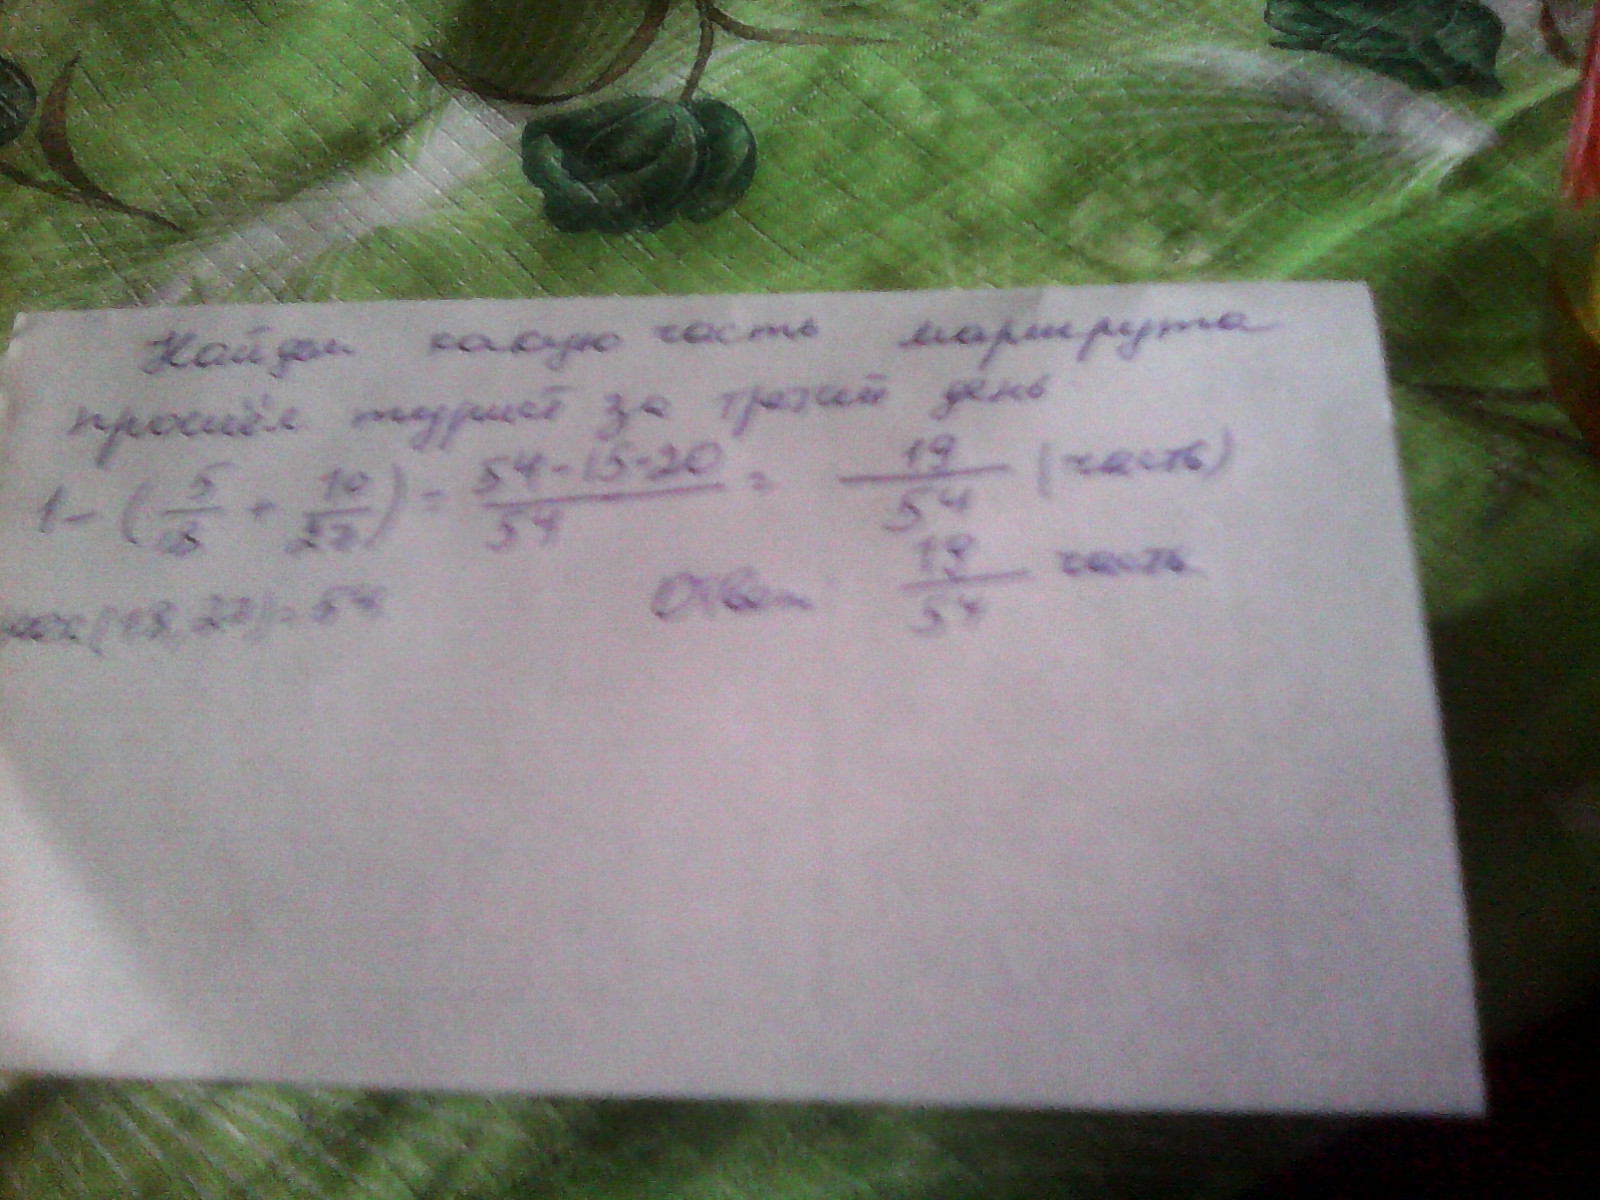 Найдем какую часть маршрута
прошёл турист за третий день
1-(5/18 + 10/27) = 54-15-20/54 = 19/54 (часть)
нок(18,27)=54 Ответ 19/54 часть